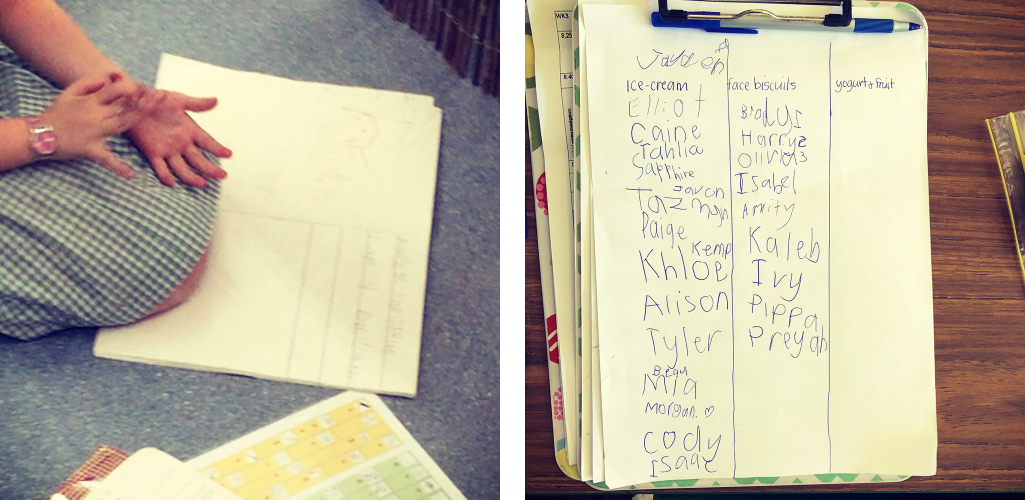 WK3
8.25
Jayden
Ice-cream
Elliot
Caine
Tahlia
Sapphire
Javon
Tazmayn
Paige
Kemp
Khloe
Alison
Tyler
Beau
Mia
Morgan. ♡
Cody
Isaac
face biscuits
Brodys
Harry2
Olivia3
Isabel
Amity
Kaleb
Ivy
Pippa
Preyah
yogurt & fruit